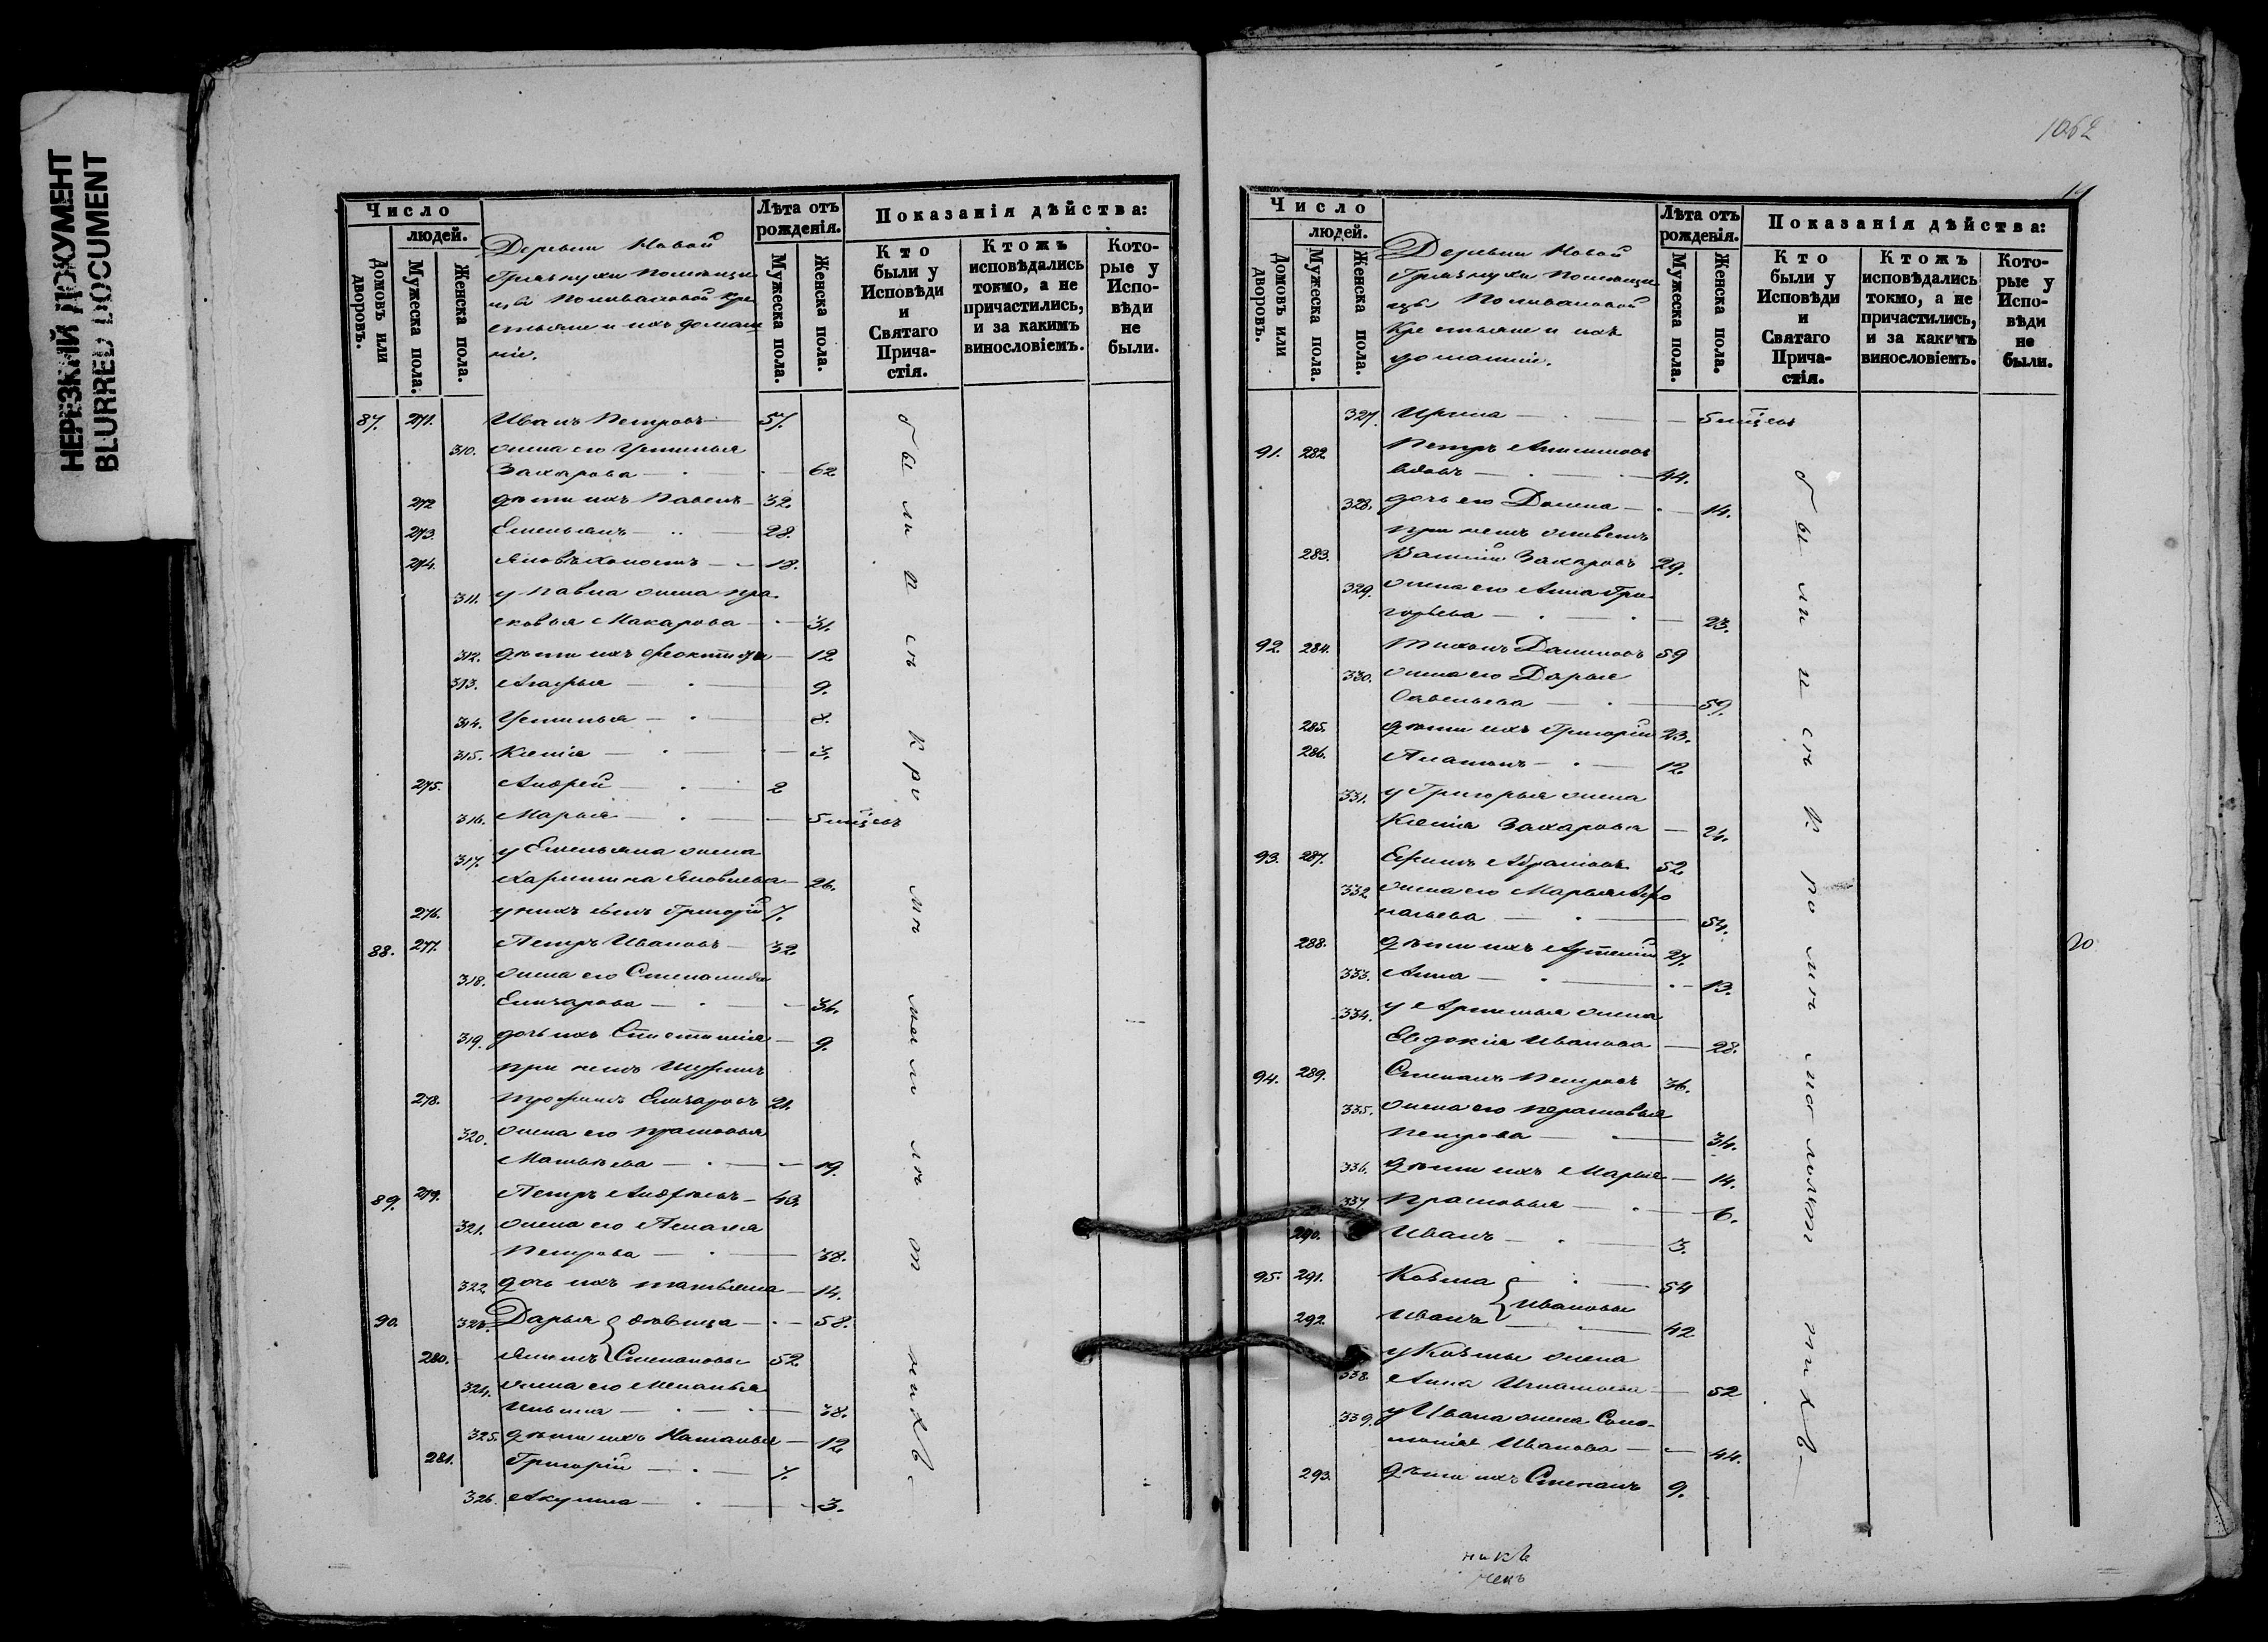 НЕРЕЗКИЙ ДОКУМЕНТ
BLURRED DOCUMENT
Число
людей.
Домовъ или дворовъ.
Мужеска пола.
Женска пола.
Деревни Новой
помѣщи
цы Поливановой кре
стьяне и ихъ домаш
ніе.
Лѣта отъ рожденія.
Мужеска пола.
Женска пола.
Показанія дѣйства:
Кто были у Исповѣди и Святаго Прича-стія.
Ктожъ исповѣдались токмо, а не причастились, и за какимъ винословіемъ.
Кото-рые у Испо-вѣди не были.
87. 271. Иванъ Петровъ 57.
310. жена его Устинья
Захарова 62
272 дѣти ихъ Павелъ 32.
273. Емельянъ 28.
274. Яковъ холостъ 18.
311. у Павла жена Пра
сковья Макарова 31.
312. дѣти ихъ Феоктиста 12
313. Агафья 9.
314. Устинья 8.
315. Ксенія 3.
275. Андрей 2
316. Марья 5 мѣсяцъ
317. у Емельяна жена
Харитина Яковлева 26.
276. у нихъ сынъ Григорій 7.
88. 277. Петръ Ивановъ 32.
318. жена его Степанида
Елизарова 34.
319. дочь ихъ 9.
при немъ Шуринъ
278. Трофимъ Елизаровъ 21.
320. жена его Прасковья
Матвѣева 19.
89. 279. Петръ Андреевъ 43.
321. жена его Пелагея
Петрова 38.
322. дочь ихъ Татьяна 14.
90. 323. Дарья дѣвица 58.
280. Степановы 52.
324. жена его Меланья
Ильина 38.
325. дѣти ихъ Наталья 12.
281. Григорій 7.
326. Акулина 3.
были и съ кромѣ малолѣтнихъ
1062
Число
людей.
Домовъ или дворовъ.
Мужеска пола.
Женска пола.
Деревни Новой
помѣщи
цы Поливановой
Крестьяне и ихъ
домашніе.
Лѣта отъ рожденія.
Мужеска пола.
Женска пола.
Показанія дѣйства:
Кто были у Исповѣди и Святаго Прича-стія.
Ктожъ исповѣдались токмо, а не причастились, и за какимъ винословіемъ.
Кото-рые у Испо-вѣди не были.
327. Ирина 5 мѣсяцъ
91. 282. Петръ Анисимовъ
вдовъ 44.
328. дочь его Домна 14.
при немъ
283. Василій Захаровъ 29.
329. жена его Анна Гри
горьева 23.
92. 284. Тихонъ Даниловъ 59
330. жена его Дарья
Савельева 59.
285. дѣти ихъ Григорій 23.
286. 12.
331. у Григорья жена
Ксенія Захарова 24.
93. 287. Ефимъ Абрамовъ 52.
332 жена его Марья Афо
насьева 54.
288. дѣти ихъ Артемій 27.
333. Анна 13.
334. у Артемья жена
Евдокія Иванова 28.
94. 289. Степанъ Петровъ 36.
335. жена его Прасковья
Петрова 34.
336. дѣти ихъ Марья 14.
337. Прасковья 6.
290. Иванъ 3.
95. 291. Козьма 54
Ивановы
292. Иванъ 42
у Козьмы жена
338. Анна Игнатьева 52
339. у Ивана жена Соло
монія Иванова 44.
293. дѣти ихъ Степанъ 9.
были и съ кромѣ малолѣтнихъ